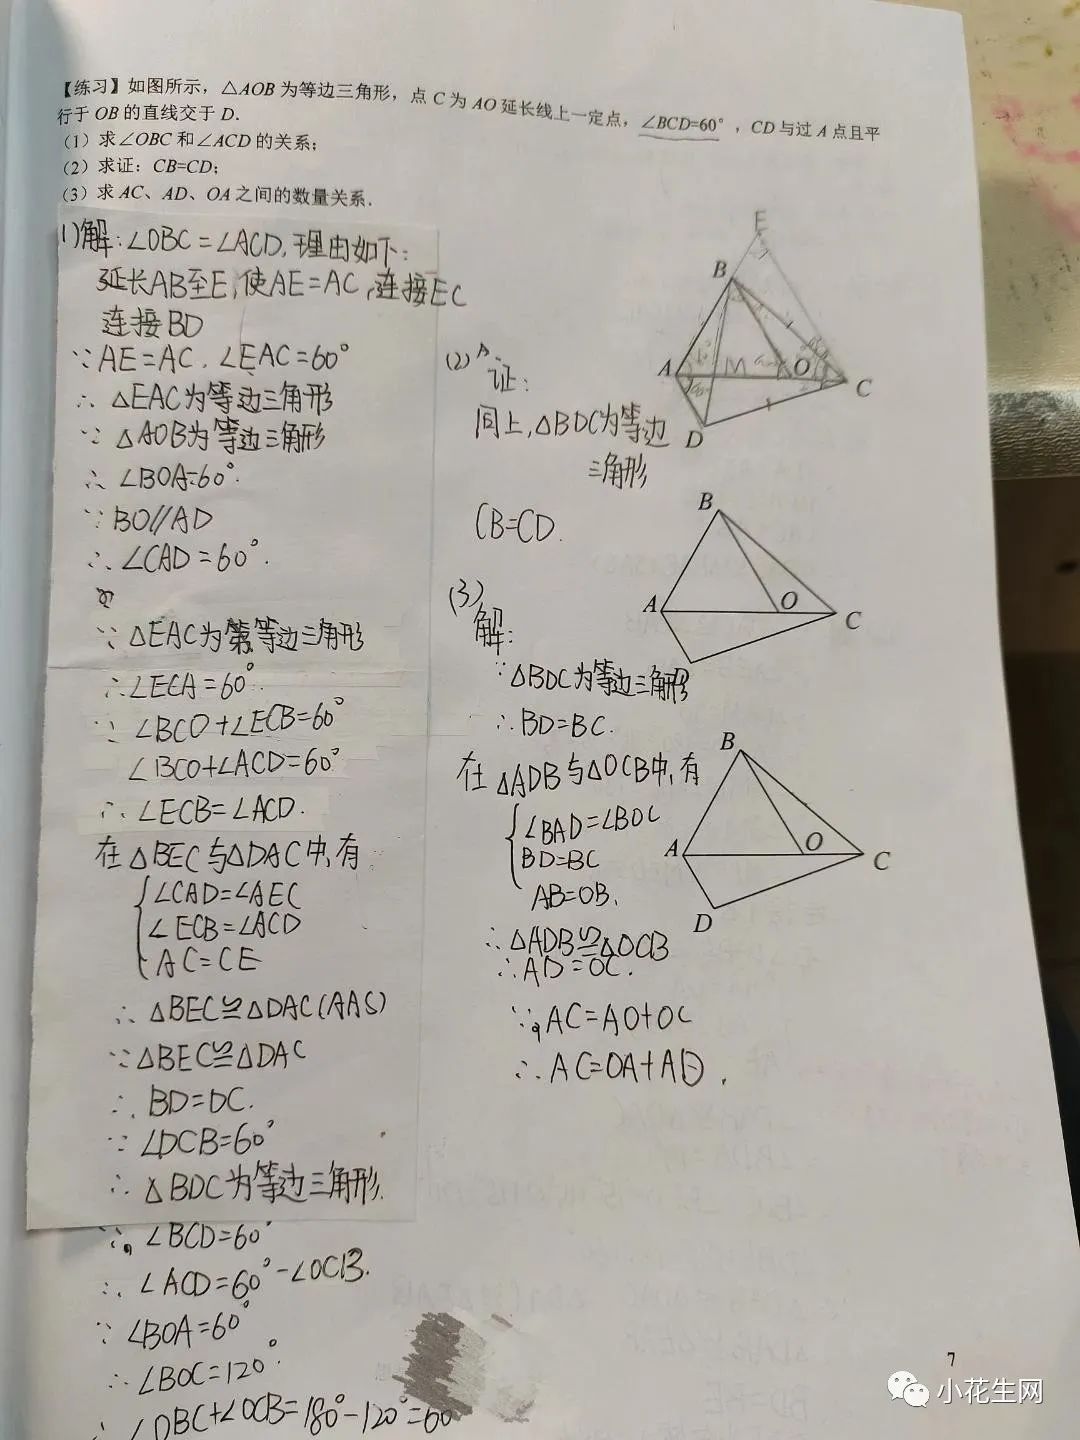 【练习】如图所示，△AOB为等边三角形，点C为AO延长线上一定点，∠BCD=60°，CD与过A点且平
行于OB的直线交于D.
(1)求∠OBC和∠ACD的关系；
(2)求证：CB=CD；
(3)求AC、AD、OA之间的数量关系.
1)解：∠OBC=∠ACD，理由如下：
延长AB至E，使AE=AC，连接EC
连接BD
∵AE=AC，∠EAC=60°
∴△EAC为等边三角形
∵△AOB为等边三角形
∴∠BOA=60°
∵BO//AD
∴∠CAD=60°.
∵△EAC为等边三角形
∴∠ECA=60°
∵∠BCO+∠ECB=60°
∠BCO+∠ACD=60°
∴∠ECB=∠ACD.
在△BEC与△DAC中，有
∠CAD=∠AEC
∠ECB=∠ACD
AC=CE
∴△BEC≌△DAC(AAS)
∵△BEC≌△DAC
∴BD=DC.
∵∠DCB=60°
∴△BDC为等边三角形.
∵∠BCD=60°
∴∠ACD=60°-∠OCB.
∵∠BOA=60°
∴∠BOC=120°.
∴∠OBC+∠OCB=180°-120°=60°
(2)
证：
同上，△BDC为等边
三角形
CB=CD.
(3)
解：
∵△BDC为等边三角形
∴BD=BC.
在△ADB与△OCB中，有
∠BAD=∠BOC
BD=BC
AB=OB.
∴△ADB≌△OCB
∴AD=OC.
∵AC=AO+OC
∴AC=OA+AD.
E
B
A
M
O
C
D
B
A
O
C
B
A
O
C
D
7
小花生网